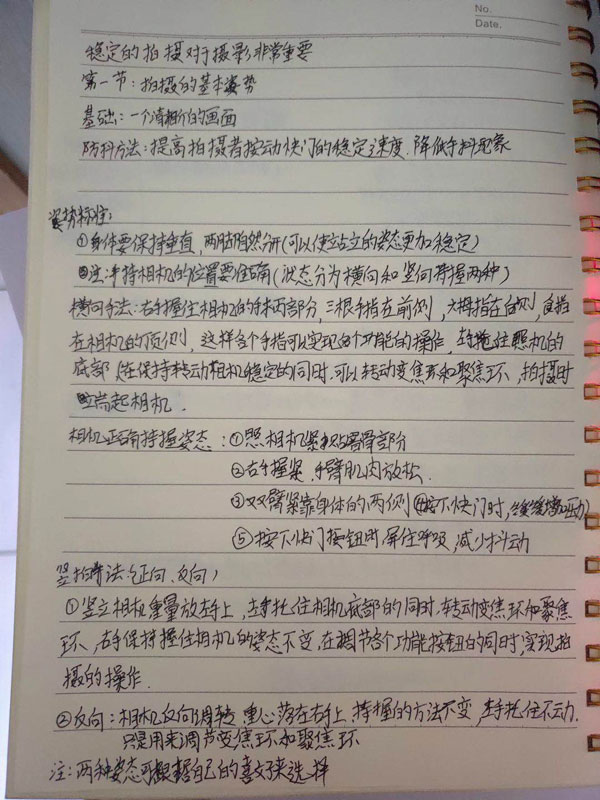 No.
Date.
稳定的拍摄对于摄影非常重要
第一节：拍摄的基本姿势
基础：一个清晰的画面
防抖方法：提高拍摄者按动快门的稳定速度.降低手抖现象
姿势标准：
①身体要保持垂直，两脚自然分开(可以使站立的姿态更加稳定)
②注：手持相机的位置要准确(状态分为横向和竖向持握两种)
横向手法：右手握住相机的手柄部分，三根手指在前侧，大拇指在后侧，食指
在相机的顶侧，这样各个手指可以实现各个功能的操作，左手托住照相机的
底部，在保持转动相机稳定的同时.可以转动变焦环和聚焦环、拍摄时
端起相机.
相机正确持握姿态：①照相机紧贴眉骨部分
②右手握紧，手臂肌肉放松.
③双臂紧靠身体的两侧④按下快门时，缓缓增压力
⑤按下快门按钮时屏住呼吸，减少抖动
竖拍手法：(正向、反向)
①竖立相机重量放左手上，左手托住相机底部的同时.转动变焦环和聚焦
环、右手保持握住相机的姿态不变.在调节各个功能按钮的同时，实现拍
摄的操作.
②反向：相机反向调转 重心落在右手上 持握的方法不变，左手托住不动.
只是用来调节变焦环和聚焦环
注：两种姿态可根据自己的喜好来选择